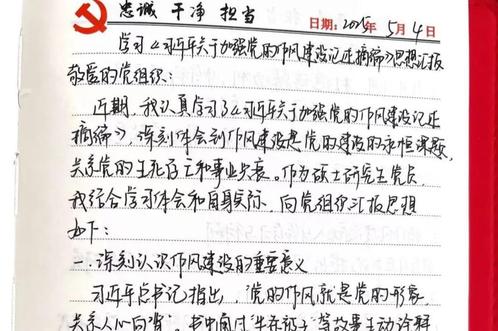 忠诚 干净 担当
日期: 2025年 5月 4日
学习《习近平关于加强党的作风建设论述摘编》思想汇报
敬爱的党组织:
近期,我认真学习了《习近平关于加强党的作风建设论述
摘编》,深刻体会到作风建设是党的建设的永恒课题,
关系党的生死存亡和事业兴衰。作为硕士研究生党员,
我结合学习体会和自身实际,向党组织汇报思想
如下:
一、深刻认识作风建设的重要意义
习近平总书记指出,"党的作风就是党的形象,
关系人心向背"。书中通过"朱德扁担"等故事生动诠释